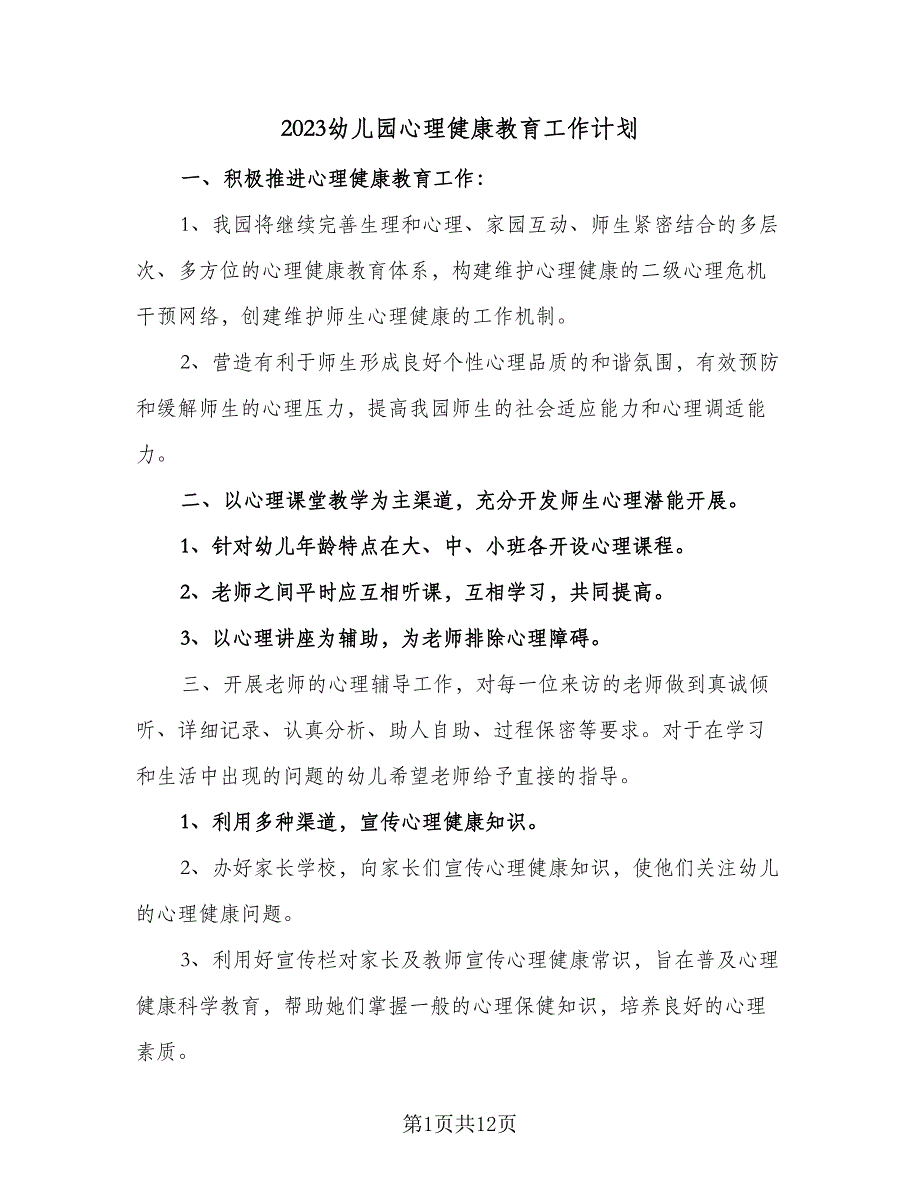 2023幼儿园心理健康教育工作计划
一、积极推进心理健康教育工作：
1、我园将继续完善生理和心理、家园互动、师生紧密结合的多层
次、多方位的心理健康教育体系，构建维护心理健康的二级心理危机
干预网络，创建维护师生心理健康的工作机制。
2、营造有利于师生形成良好个性心理品质的和谐氛围，有效预防
和缓解师生的心理压力，提高我园师生的社会适应能力和心理调适能
力。
二、以心理课堂教学为主渠道，充分开发师生心理潜能开展。
1、针对幼儿年龄特点在大、中、小班各开设心理课程。
2、老师之间平时应互相听课，互相学习，共同提高。
3、以心理讲座为辅助，为老师排除心理障碍。
三、开展老师的心理辅导工作，对每一位来访的老师做到真诚倾
听、详细记录、认真分析、助人自助、过程保密等要求。对于在学习
和生活中出现的问题的幼儿希望老师给予直接的指导。
1、利用多种渠道，宣传心理健康知识。
2、办好家长学校，向家长们宣传心理健康知识，使他们关注幼儿
的心理健康问题。
3、利用好宣传栏对家长及教师宣传心理健康常识，旨在普及心理
健康科学教育，帮助她们掌握一般的心理保健知识，培养良好的心理
素质。
第1页共12页